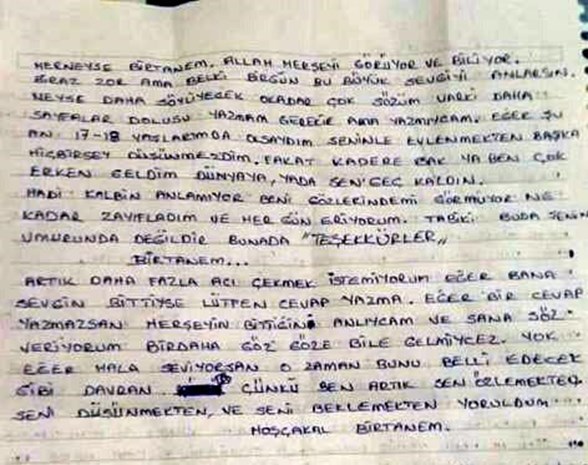 HERNEYSE BİRTANEM. ALLAH HERŞEYİ GÖRÜYOR VE BİLİYOR.
BİRAZ ZOR AMA BELKİ BİRGÜN BU BÜYÜK SEVGİYİ ANLARSIN.
NEYSE DAHA SÖYLİYECEK OKADAR ÇOK SÖZÜM VARKİ DAHA
SAYFALAR DOLUSU YAZMAM GEREKİR AMA YAZMIYCAM. EĞER ŞU
AN 17-18 YAŞLARIMDA OLSAYDIM SENİNLE EVLENMEKTEN BAŞKA
HİÇBİRŞEY DÜŞÜNMEZDİM. FAKAT KADERE BAK YA BEN ÇOK
ERKEN GELDİM DÜNYAYA, YADA SEN GEÇ KALDIN.
HADİ KALBİN ANLAMIYOR BENİ GÖZLERİNDEMİ GÖRMÜYOR NE
KADAR ZAYIFLADIM VE HER GÜN ERİYORUM. TABİKİ BUDA SENİN
UMURUNDA DEĞİLDİR BUNADA "TEŞEKKÜRLER"
BİRTANEM...
ARTIK DAHA FAZLA ACI ÇEKMEK İSTEMİYORUM EĞER BANA
SEVGİN BİTTİYSE LÜTFEN CEVAP YAZMA. EĞER BİR CEVAP
YAZMAZSAN HERŞEYİN BİTTİĞİNİ ANLIYCAM VE SANA SÖZ
VERİYORUM BİRDAHA GÖZ GÖZE BİLE GELMİYCEZ. YOK
EĞER HALA SEVİYORSAN O ZAMAN BUNU BELLİ EDECEK
GİBİ DAVRAN ÇÜNKÜ BEN ARTIK SENİ ÖZLEMEKTEN,
SENİ DÜŞÜNMEKTEN, VE SENİ BEKLEMEKTEN YORULDUM...
HOŞÇAKAL BİRTANEM.